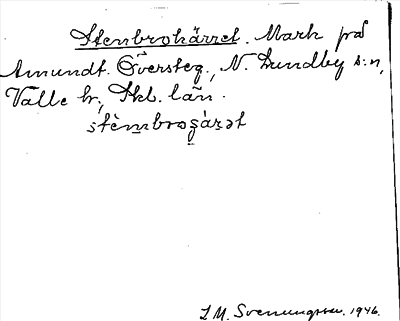 Stenbrokärret. Mark på
Amundt. Översteg., N. Lundby s:n,
Valle hr, Skb. län.
stèm̲bros̲ár̲ət
S. M. Svenungsson. 1946.